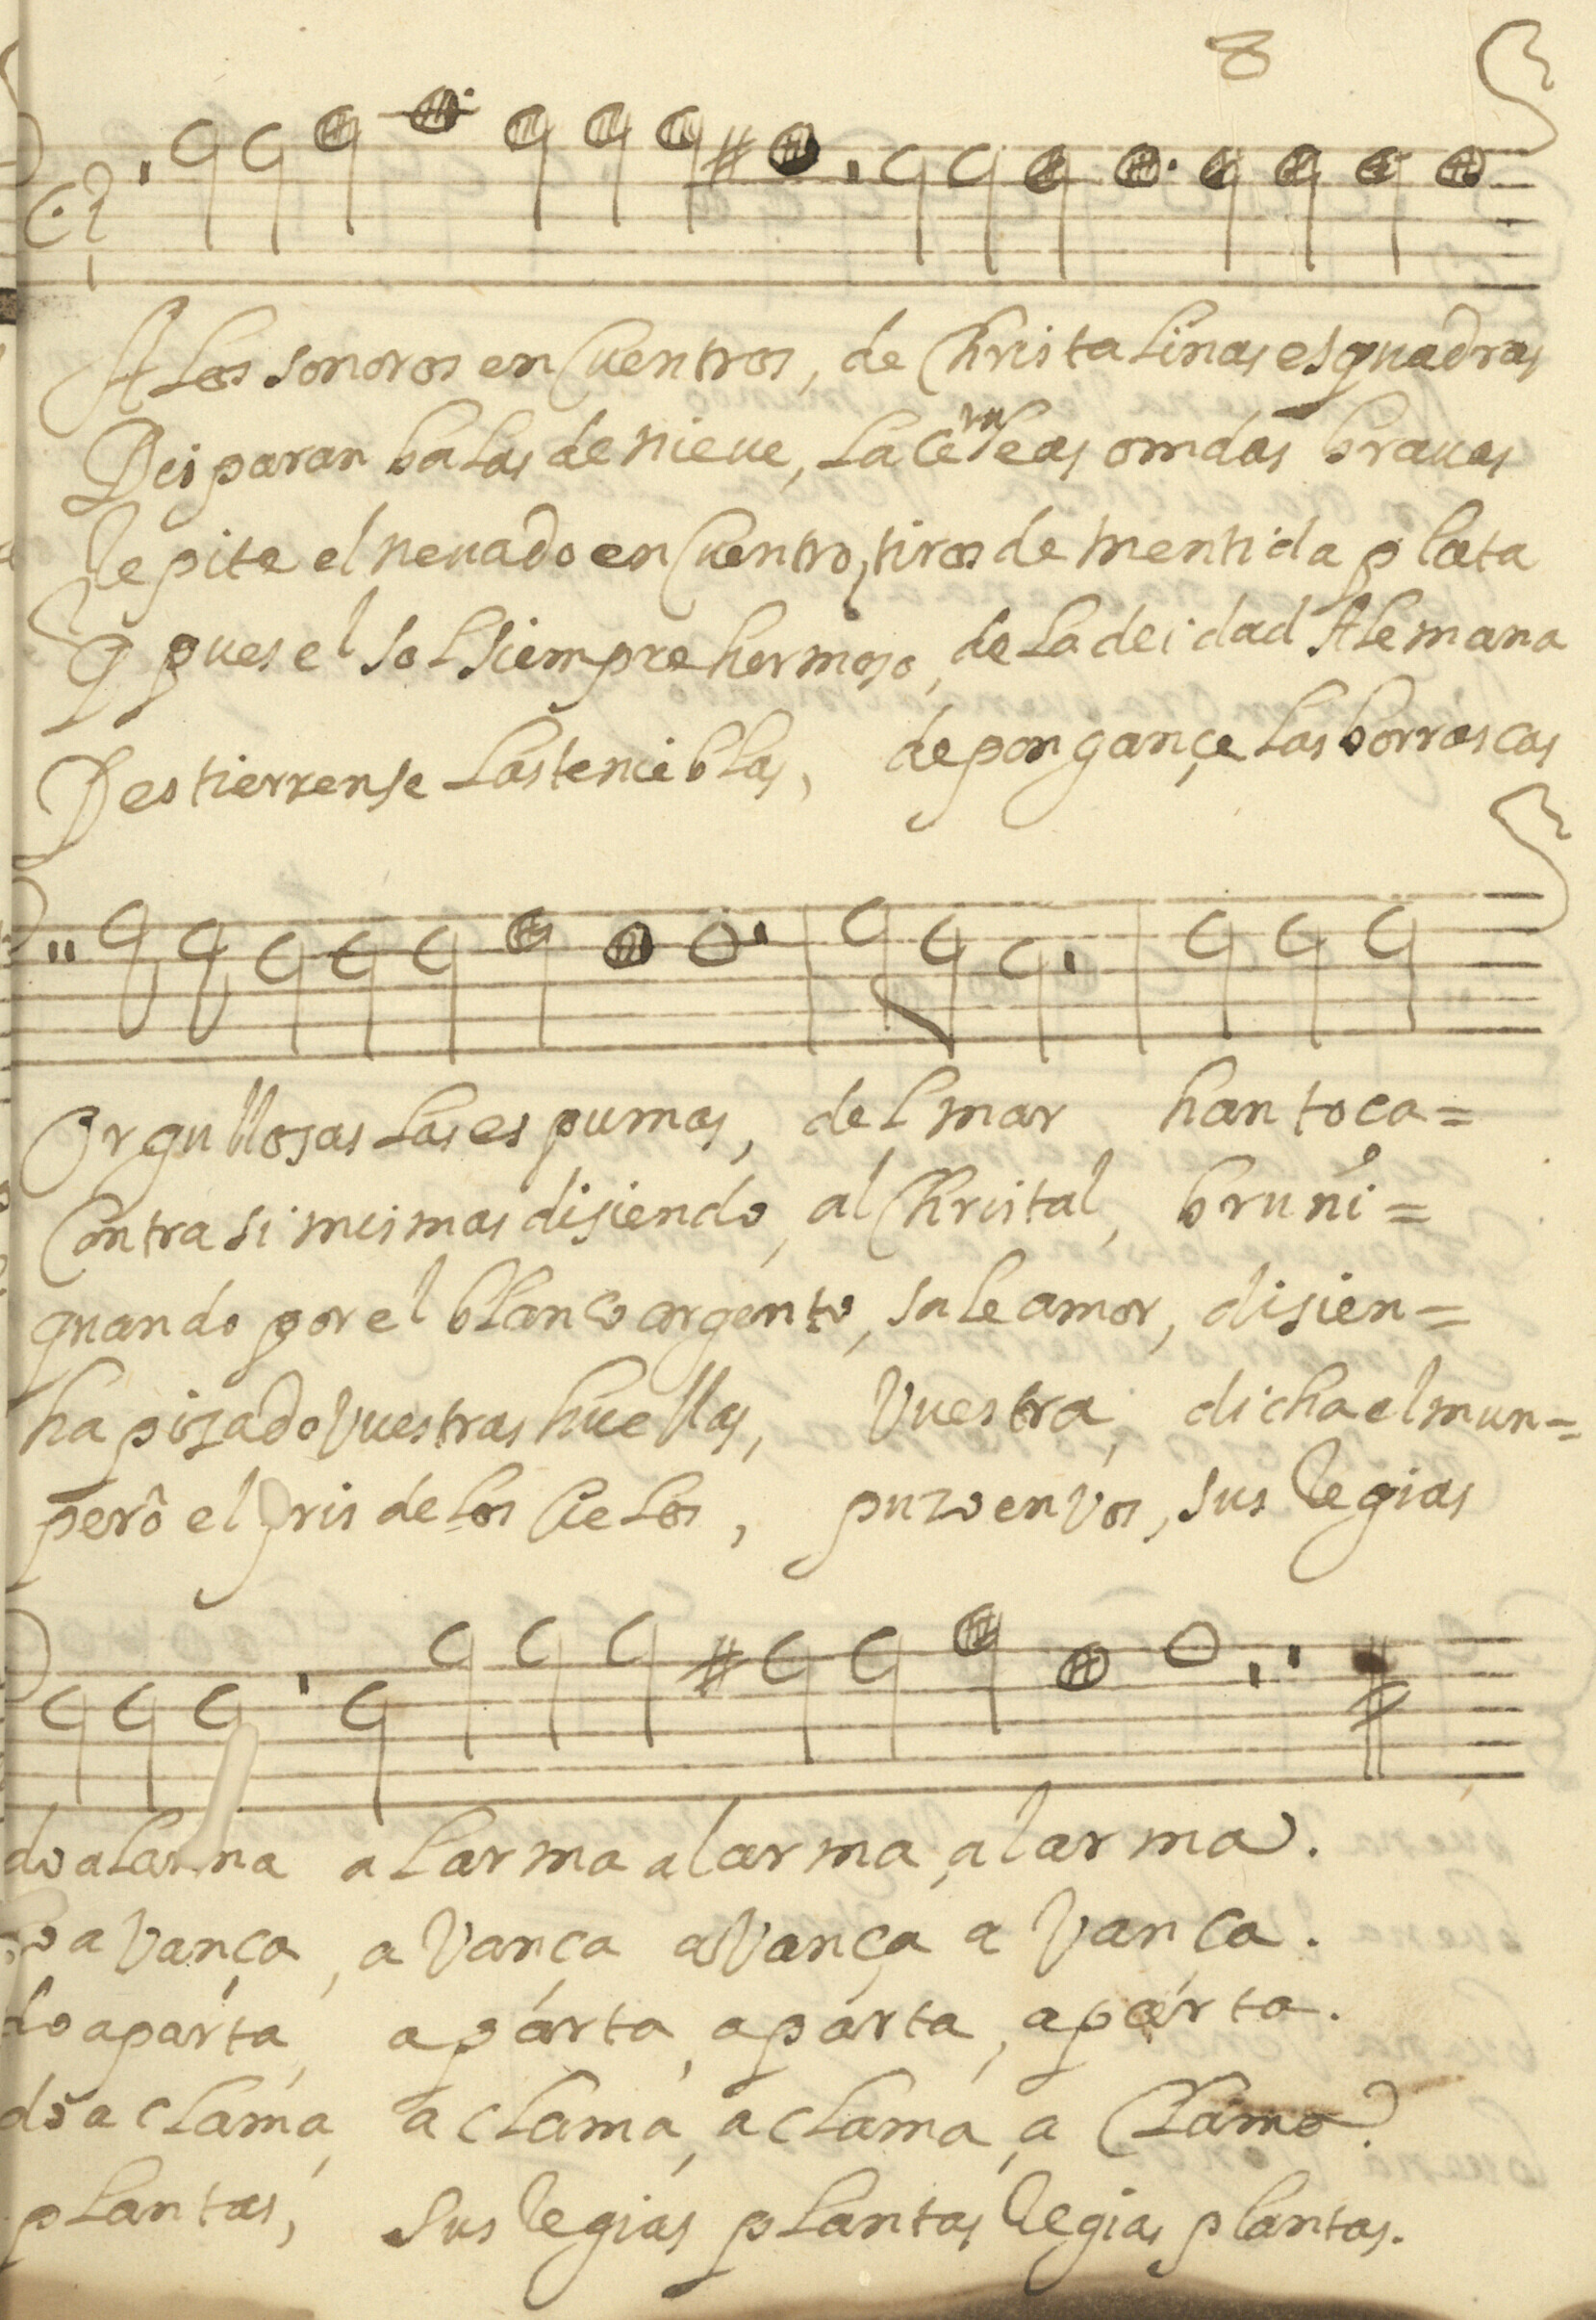 8
A los sonoros encuentros, de christalinas esquadras
Disparan balas de nieue, la ceruleas ondas brauas
Repite el neuado encuentro, tiros de mentida plata
Y pues el sol siempre hermoso, de la deidad Alemana
Destierrense las tenieblas, depongançe las borrascas
Orgullosas las espumas, del mar han toca=
Contra si mismas disiendo, al christal, bruñi=
quando por el blanco argento, sale amor, disien=
ha pizado vuestras huellas, vuestra, dicha el mun=
però el Yris de los cielos, puzo en vos, sus Regias
do alarma alarma alarma, alarma.
do avança, avança avança avança.
do aparta, aparta, aparta, aparta.
do aclama, aclama, aclama, aclama.
plantas, sus Regias plantas Regias plantas.